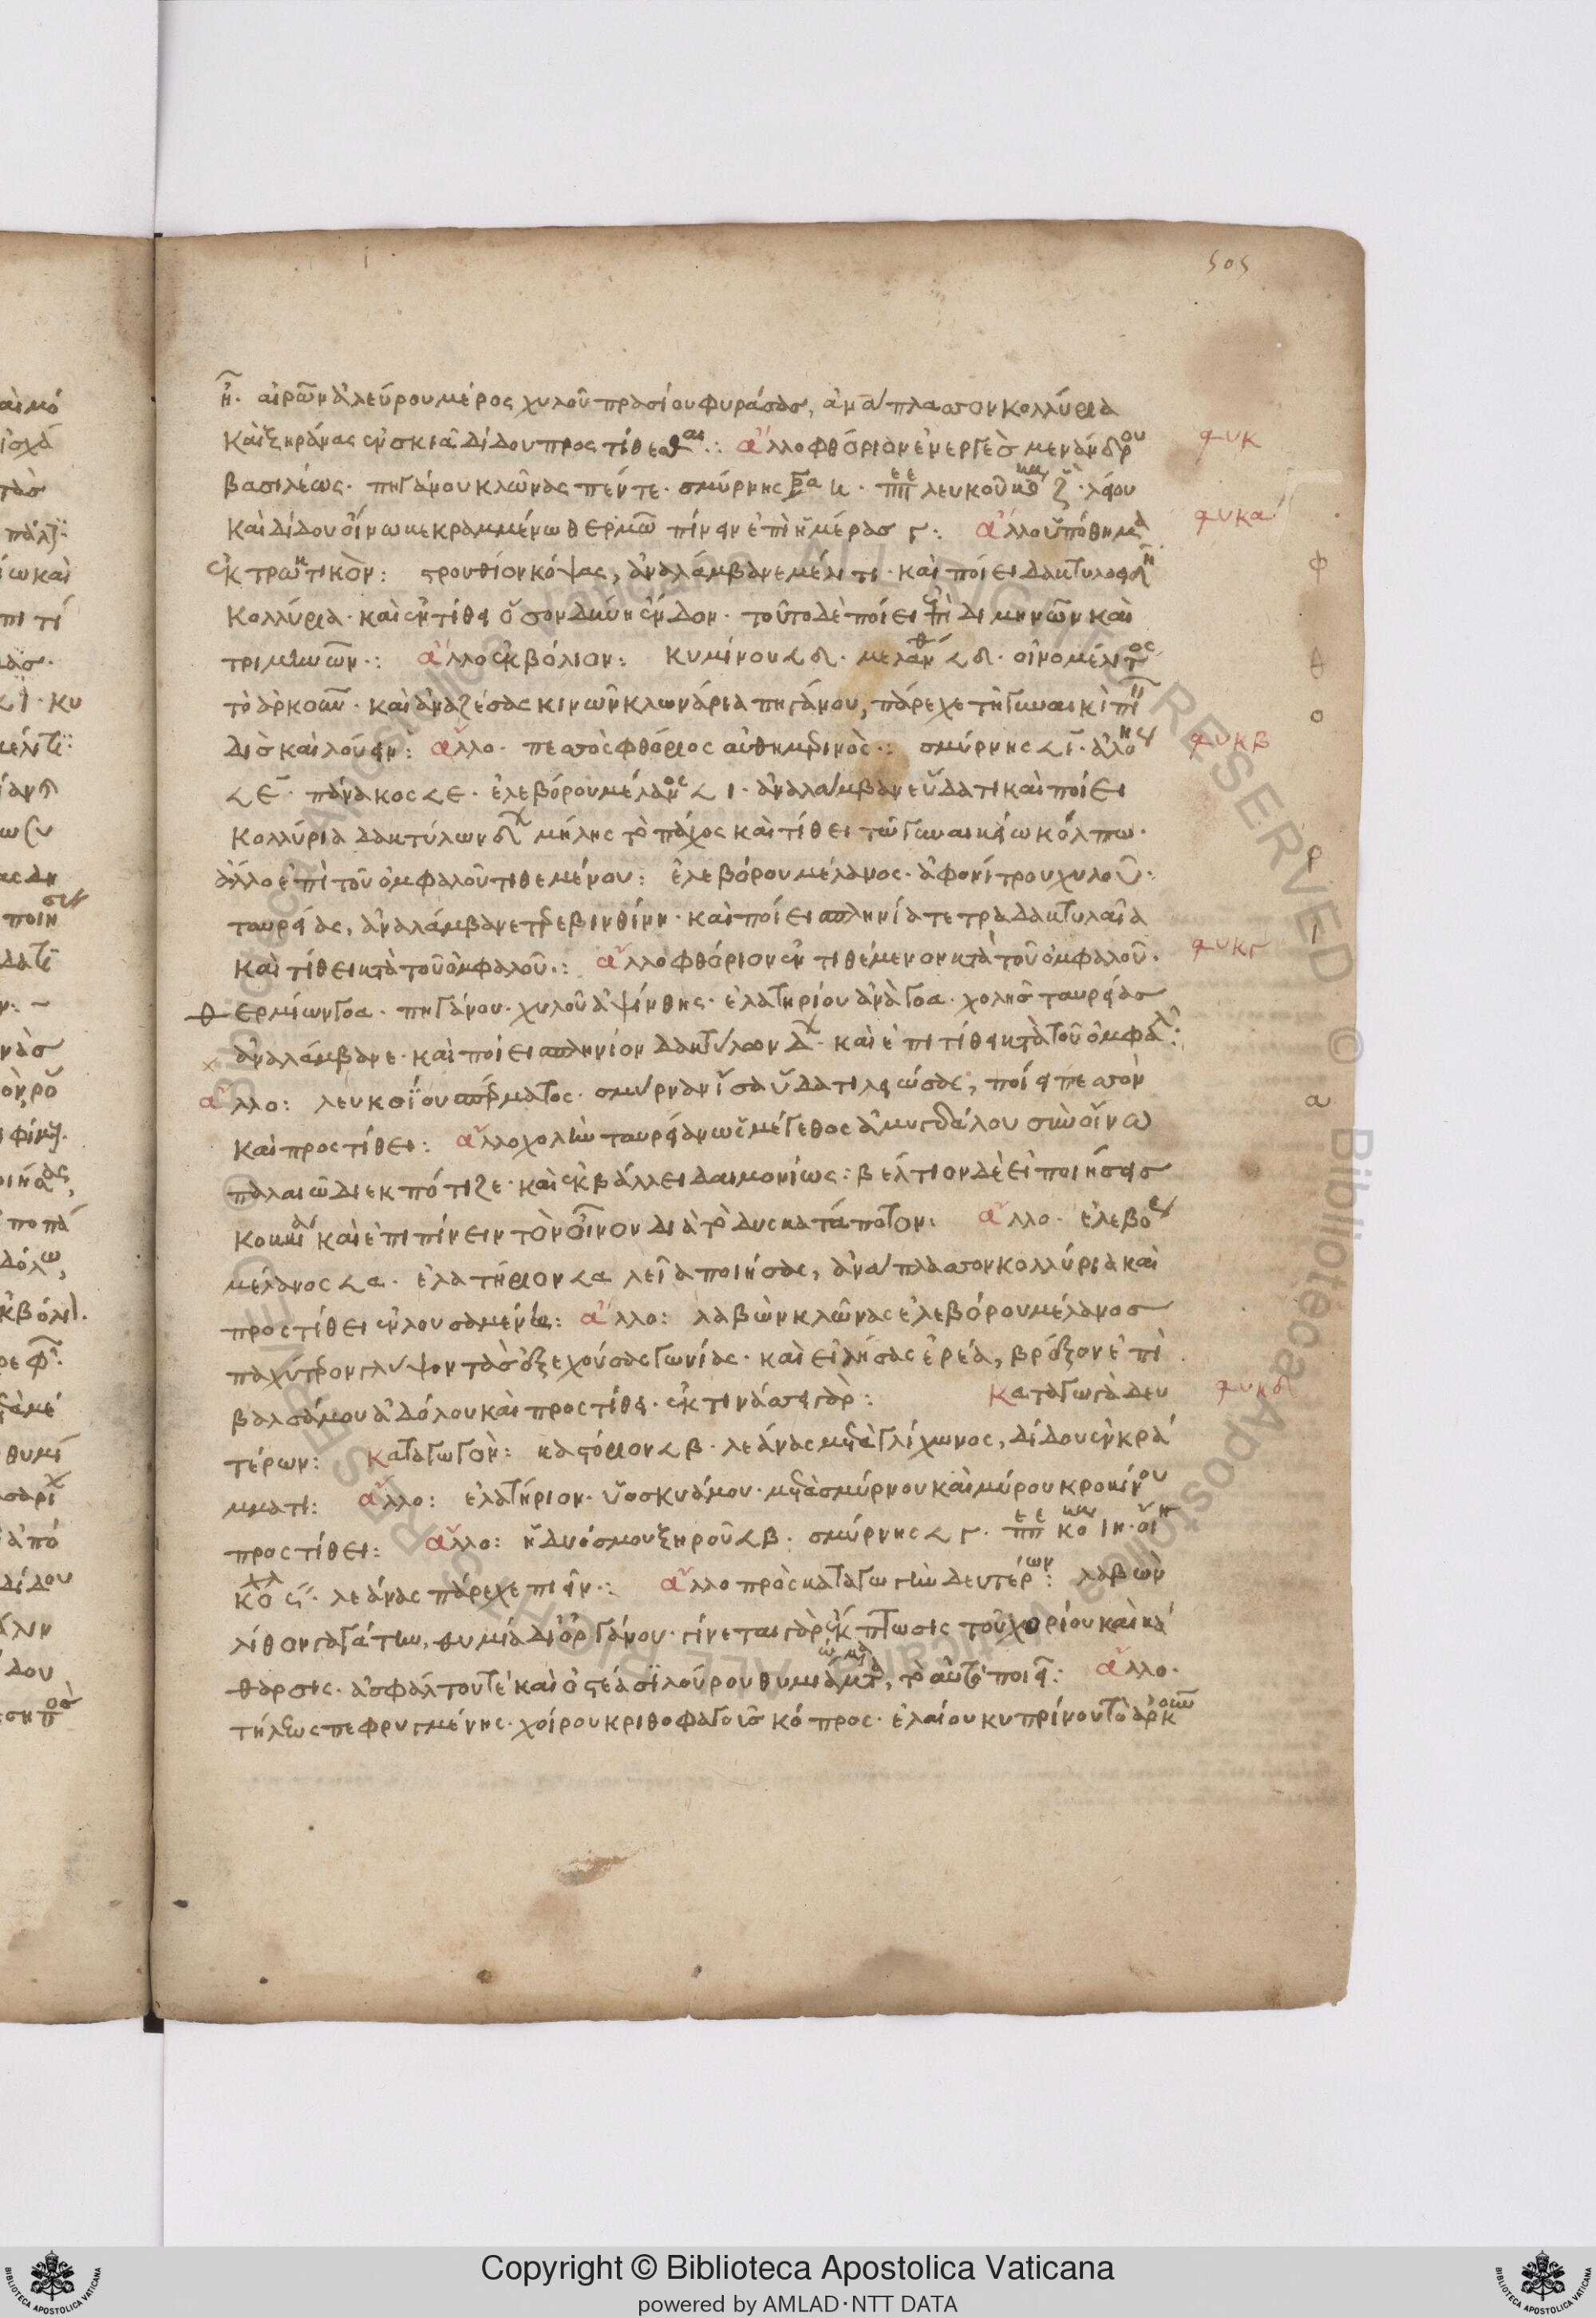 505
ἢ. αἰρῶν ἀλεύρου μέρος χυλοῦ πρασίου φυράσας, ἀνάπλασσον κολλύρια
καὶ ξηράνας ἐν σκιᾶ δίδου προστίθεσθαι: ἄλλο φθόριον ἐνεργὲς μενάνδρου
φυκ
βασιλέως· πηγάνου κλῶνας πέντε· σμύρνης λευκοῦ
καὶ δίδου οἴνω κεκραμμένω θερμῶ πίνειν ἐπὶ ἡμέρας γ: ἄλλο ὑπόθημα
φυκα
ἐκτρωτικὸν: στρουθίον κόψας, ἀναλάμβανε μέλιτι· καὶ ποίει
κολλύρια· καὶ ἐντίθει ἔνδον· τοῦτο δὲ ποίει ἐπὶ διμηνῶν καὶ
τριμηνῶν: ἄλλο ἐκβόλιον: κυμίνου 𐅻 δ· 𐅻 δ· οἰνομέλιτος
τὸ ἀρκοῦν· καὶ ἀναζέσας κινῶν κλωνάρια πηγάνου, πάρεχε τῆ γυναικὶ
δὶς καὶ λούειν: ἄλλο· πεσσὸς φθόριος αὐθημερινὸς: σμύρνης 𐅻 ι· ἀλόης
φυκβ
𐅻 ε· πάνακος 𐅻 ε· ἐλεβόρου μέλανος 𐅻 ι· ἀναλάμβανε ὕδατι καὶ ποίει
κολλύρια δακτύλων μήλης τὸ πάχος καὶ τίθει τῶ γυναικείω κόλπω·
ἄλλο ἐπὶ τοῦ ὀμφαλοῦ τιθεμένου: ἐλεβόρου μέλανος· ἀφονίτρου χυλοῦ·
ταυρείας, ἀναλάμβανε τερεβινθίνη· καὶ ποίει σπληνία τετραδακτυλαῖα
καὶ τίθει κατὰ τοῦ ὀμφαλοῦ: ἄλλο φθόριον ἐντιθέμενον κατὰ τοῦ ὀμφαλοῦ·
φυκγ
θερμίων πηγάνου· χυλοῦ ἀψίνθης· ἐλατηρίου ἀνὰ χολῆς ταυρείας
ἀναλάμβανε· καὶ ποίει σπληνίον δακτύλων δ· καὶ ἐπιτίθει κατὰ τοῦ ὀμφαλ:
ἄλλο: λευκοΐου σπέρματος· σμύρναν ἴσα ὕδατι λειώσας, ποίει πεσσὸν
καὶ προστίθει: ἄλλο χολὴν ταυρείαν ὡς μέγεθος ἀμυγδάλου σὺν οἴνω
παλαιῶ διεκπότιζε· καὶ ἐκβάλλει δαιμονίως: βέλτιον δὲ εἰ ποιήσεις
καὶ ἐπιπίνειν τὸν οἶνον διὰ τὸ δυσκατάποτον: ἄλλο· ἐλεβόρου
μέλανος 𐅻 α· ἐλατήριον 𐅻 α λεῖα ποιήσας, ἀνάπλασσον κολλύρια καὶ
προστίθει ἐν λουσαμένη: ἄλλο: λαβὼν κλῶνας ἐλεβόρου μέλανος
παχύτερον γλύψον τὰς ἐξεχούσας γωνίας· καὶ εἰλήσας ἐρέα, βρέξον ἐπὶ
βαλσάμου ἀδόλου καὶ προστίθει· ἐκτινάσσει γὰρ: καταγωγὰ δευ
φυκδ
τέρων: καταγωγὸν: καστόριον 𐅻 β· λεάνας μετὰ γλίχωνος, δίδου ἐν κρά
μματι: ἄλλο: ἐλατήριον· ὑοσκυάμου· μετὰ σμύρνου καὶ μύρου κροκίνου
προστίθει: ἄλλο: ἡδυόσμου ξηροῦ 𐅻 β· σμύρνης 𐅻 γ·
λεάνας πάρεχε πιεῖν: ἄλλο πρὸς καταγωγὴν δευτέρων: λαβὼν
λίθον γαγάτην, θυμία δι' ὀργάνου· γίνεται γὰρ ἔκπτωσις τοῦ χορίου καὶ κά
θαρσις· ἀσφάλτου τὲ καὶ ὀστέα σιλούρου τὸ αὐτὸ ποιεῖ: ἄλλο·
τήλεως πεφρυγμένης· χοίρου κριθοφάγου κόπρος· ἐλαίου κυπρίνου τὸ ἀρκοῦν
φ
θ
ο
ρ
ι
α
Copyright © Biblioteca Apostolica Vaticana
powered by AMLAD·NTT DATA